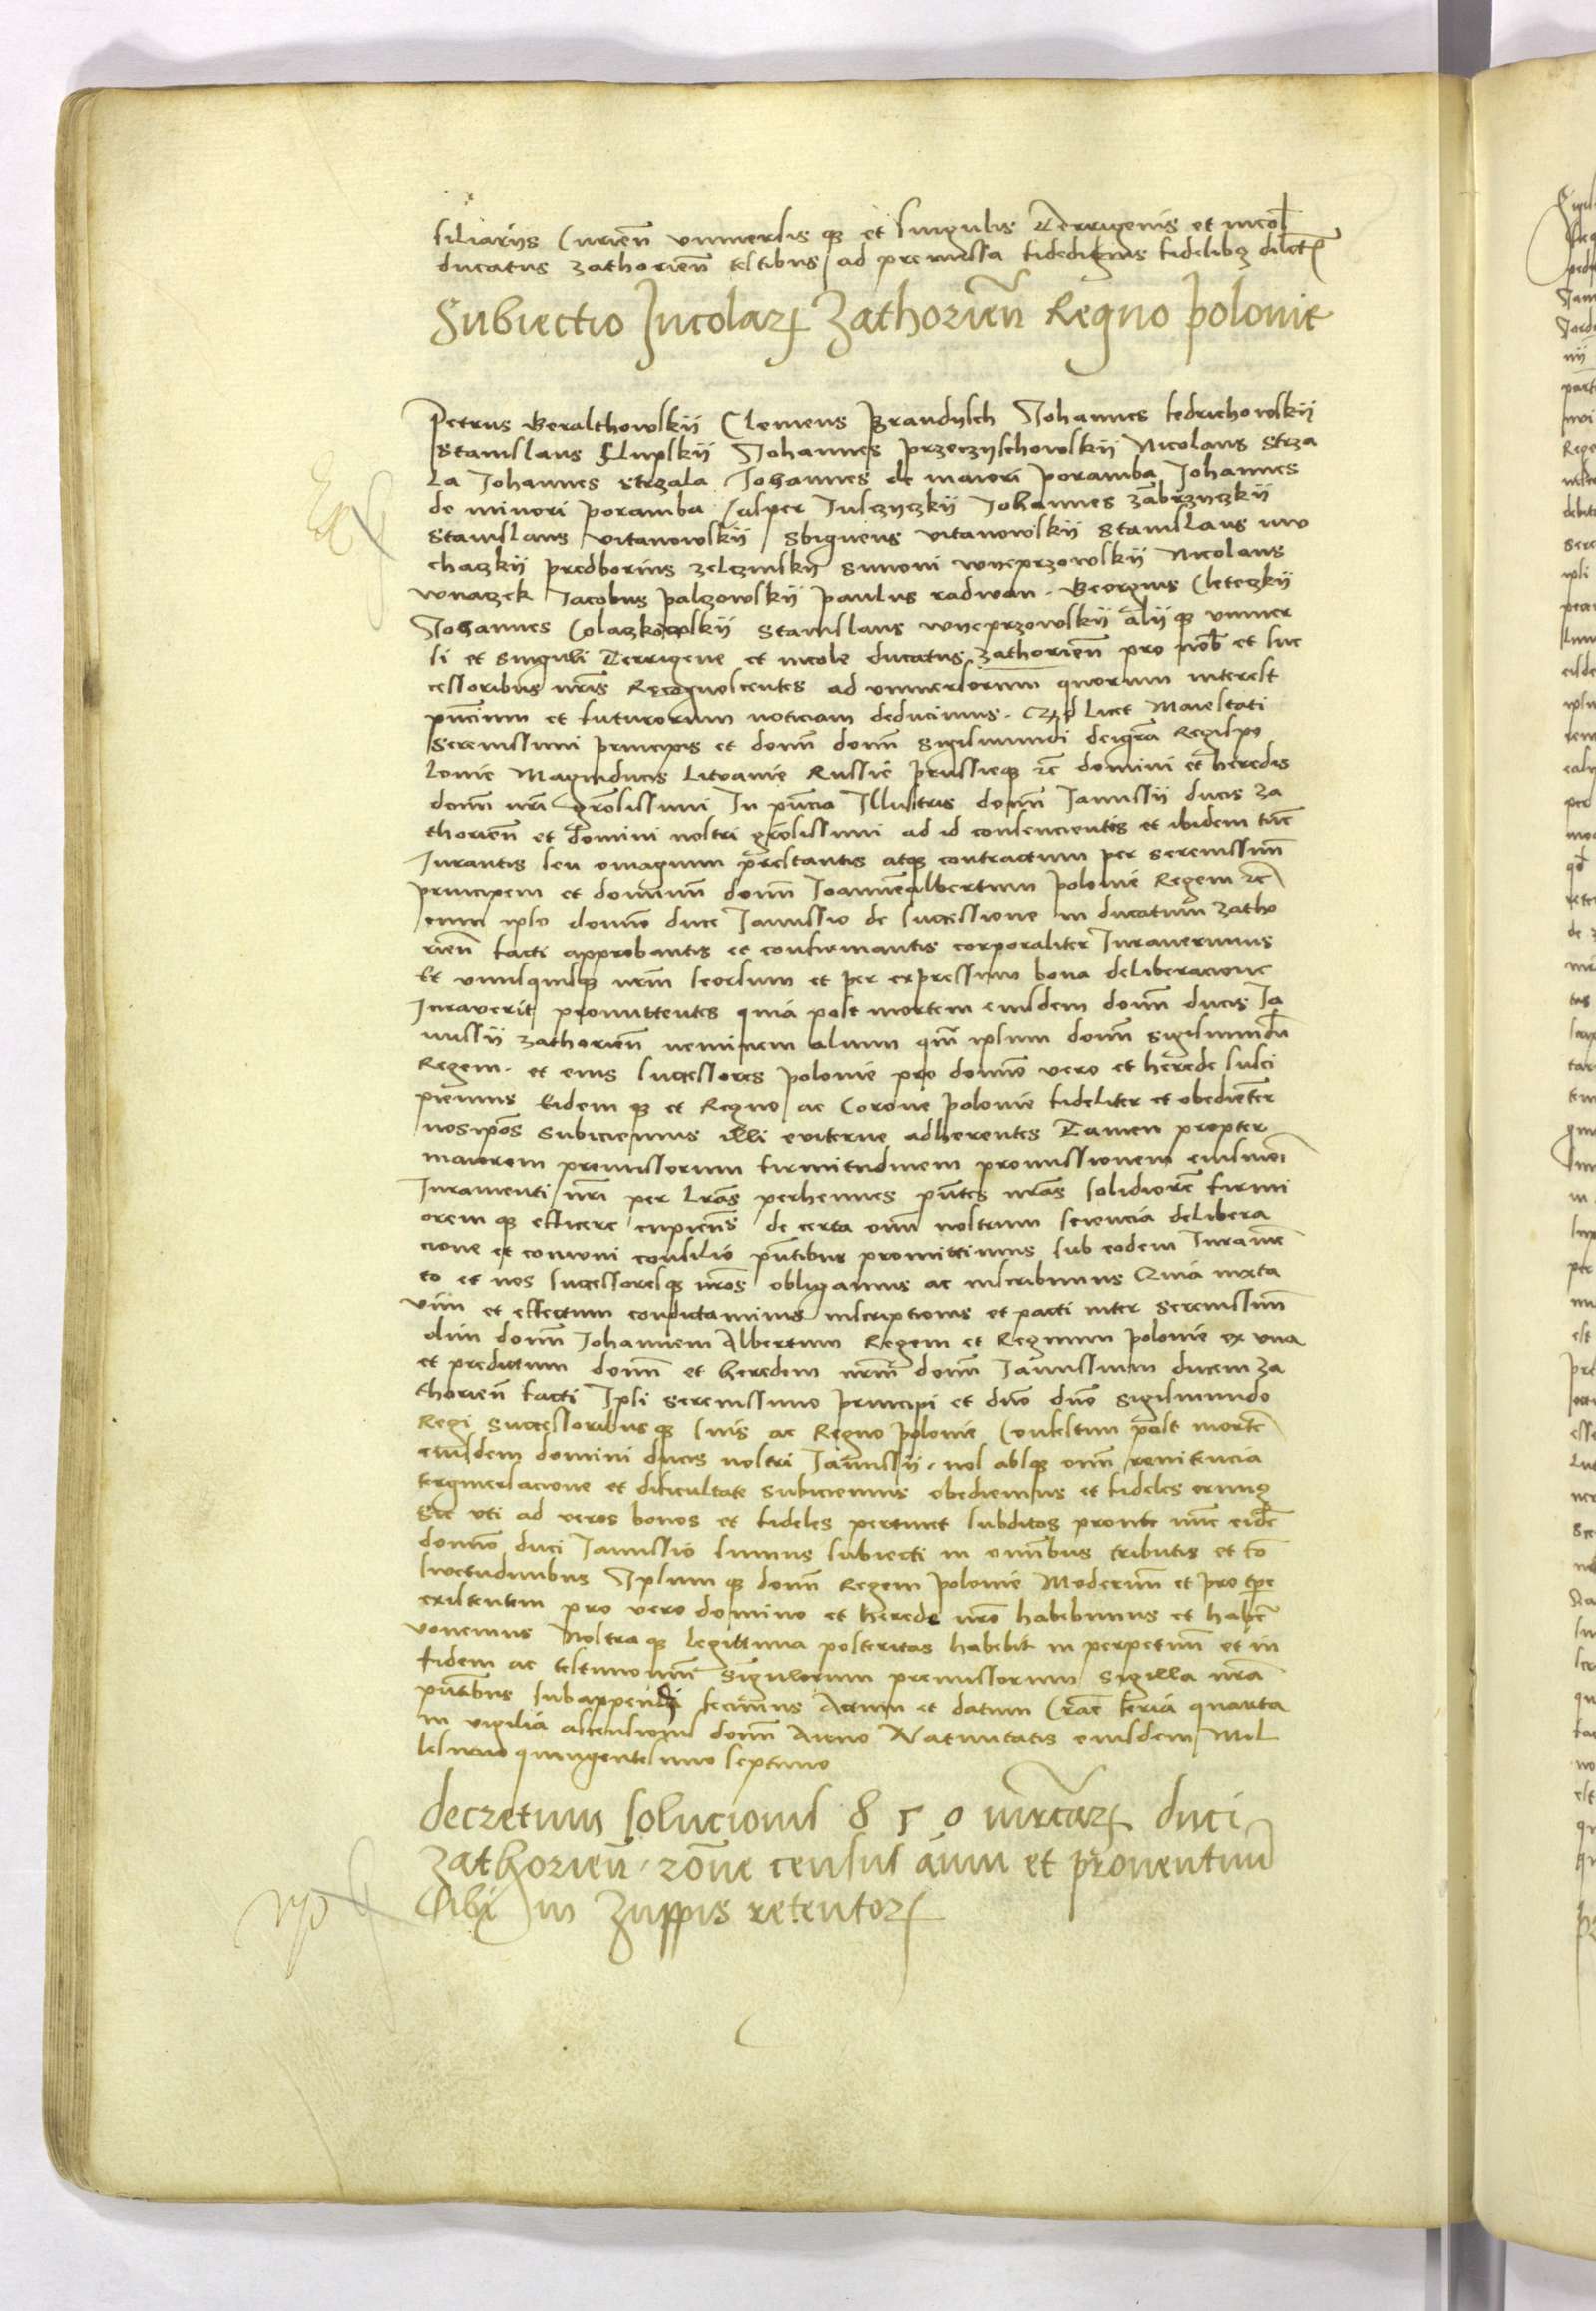 siliariis Curien̄ vniuersis q; et singulis Terrigenis et incol̄
ducatus zathorien̄ testibus ad premissa fidedignis fidelib; dilect̄
Subiectio Incolarꝝ Zathorien̄ Regno polonie
Petrus Geralthowskij Clemens Brandysch Johannes fedrichowskij
Stanislaus Slupskij Johannes przeczyschowskij Nicolaus Strza
la Johannes strzala Johannes de maiori poramba Johannes
de minori poramba Casper Julczyczkij Johannes zabrzyczkij
Stanislaus vitanowskij Sbigneus vitanowskij Stanislaus
chaczkij predborius zelczinskij Simoni wyeprzowskij Nicolaus
wnaczek Jacobus palczowskij paulus radwan Georgius Cleteczkij
Johannes Stanislaus wyeprzowskij alij q; vniuer
si et singuli Terrigene et incole ducatus zathorien̄ pro nob̄ et suc
cessoribus nr̄is Recognoscentes ad vniuersorum quorum interest
pn̄cium et futurorum noticiam deducimus. Licet Maiestati
Serenissimi principis et domn̄ domn̄ Sigismundi deigr̄a Regispo
lonie Magniducis Litvanie Russie prussieq; ꝛc̄ domini et heredis
domn̄ nr̄i gr̄osissimi In pn̄cia Illustris domn̄ Janussij ducis za
thorien̄ et domini nostri gr̄osissimi ad id consencientis et ibidem tūc
Jurantis seu omagium prestantis atq; contractum per serenissim̄
principem et dominum domn̄ Joannēalbertum polonie Regem ꝛc̄
cum ipso domno duce Janussio de successione in ducatum zatho
rien̄ facti approbantis et confirmantis corporaliter Juraverimus
Et vnusquisq; nr̄m seorsum et per expressum bona deliberacione
Juraverit promittentes quia post mortem eiusdem domn̄ ducis Ja
nussij zathorien̄ neminem alium qm̄ ipsum domn̄ sigismundū
Regem. et eius successores polonie pro domno vero et herede susci
piemus Eidem q; et Regno ac Corone polonie fideliter et obedienter
nosip̄os subiciemus illi eviterne adherentes Tamen propter
maiorem premissorum firmitudinem promissionem eiusmōi
Juramenti nr̄i per Lr̄as perhennes pn̄tes nr̄as solidiorē firmi
orem q; efficere cupien̄s de certa omn̄ nostrum sciencia delibera
cione et comuni consilio pn̄tibus promittimus sub eodem Juramē
to et nos successoresq; nr̄os obligamus ac inscribimus Quia iuxta
vim et effectum condictaminis inscriptionis et pacti inter serenissim̄
olim domn̄ Johannem Albertum Regem et Regnum polonie ex vna
et predictum domn̄ et heredem nr̄m domn̄ Janussium ducem za
thorien̄ facti Ipsi serenissimo principi et dn̄o dn̄o Sigismundo
Regi Successoribus q; suis ac Regno polonie Confestim post mortē
eiusdem domini ducis nostri Janussij. nos absq; omn̄ renitencia
tergiuersacione et dificultate subiciemus obediemus et fideles erimus
Sic vti ad veros bonos et fideles pertinet subditos pronte nūc eidē
domno duci Janussio sumus subiecti in omnibus tributis et cō
swetudinibus Ipsum q; domn̄ Regem polonie Modernn̄ et pro tp̄e
existentem pro vero domino et herede nr̄o habebimus et habere
volemus Nostra q; legittima posteritas habebit in perpetuū et in
fidem ac testimonnn̄ Singulorum premissorum Sigilla nr̄a
pn̄tibus subappendi fecimus Actum et datum Crac̄ feria quarta
in vigilia ascensionis domn̄ Anno Natiuitatis eiusdem Mil
lesimo quingentesimo septimo
decretum solucionis 850 mrcarꝝ duci
Zathorien̄ . rōne census annui et prouentuum
sibi in Zuppis retentorꝝ